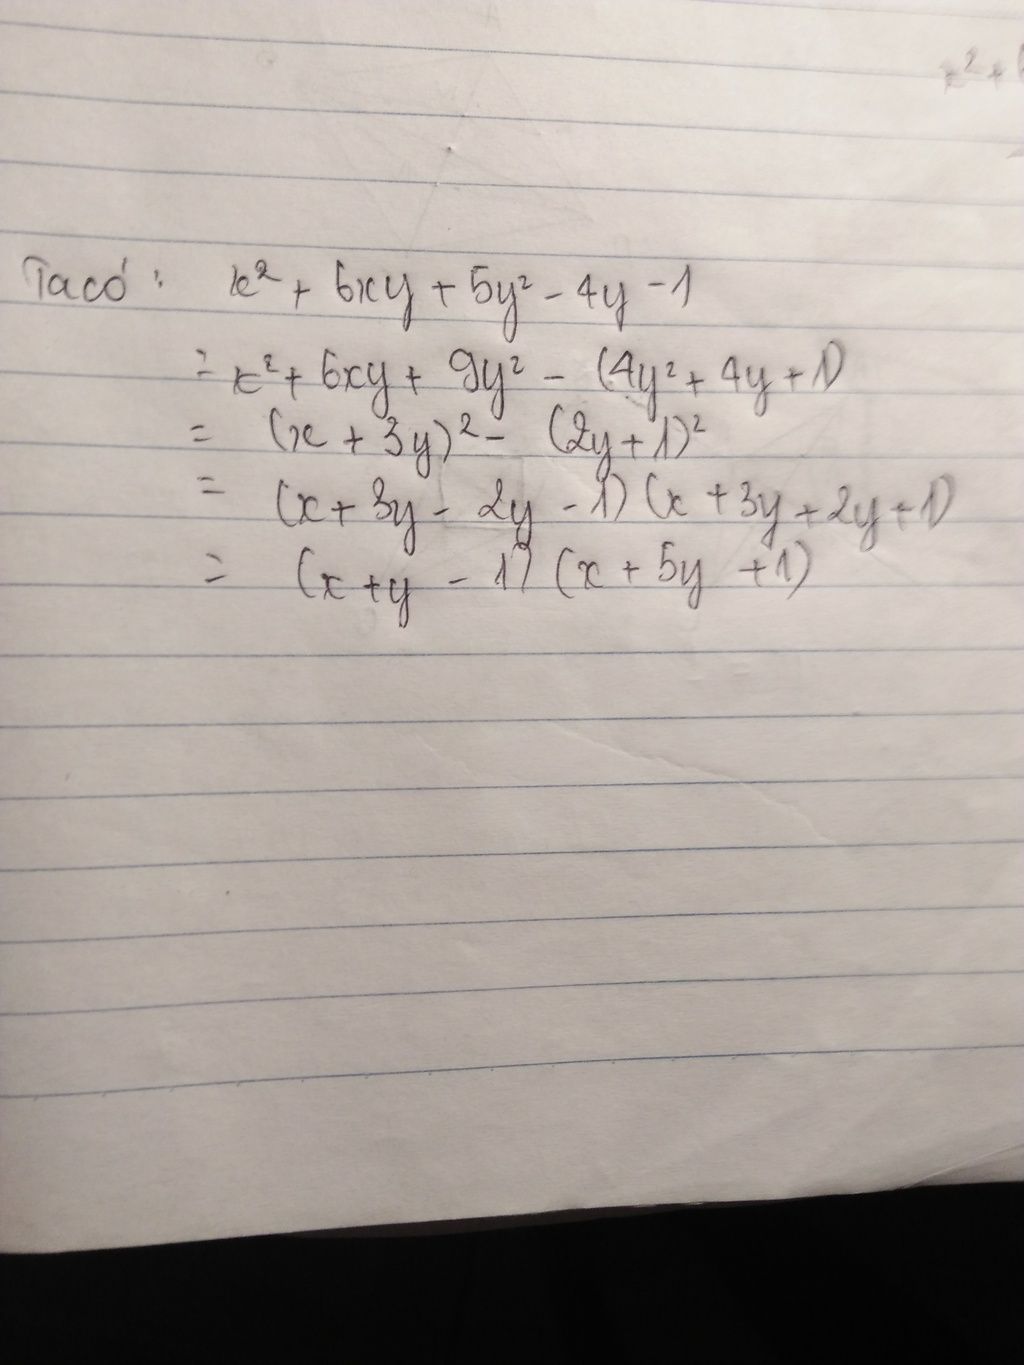 x² + 
Ta có : x² + 6xy + 5y² - 4y - 1
= x² + 6xy + 9y² - (4y² + 4y + 1)
= (x + 3y)² - (2y + 1)²
= (x + 3y - 2y - 1) (x + 3y + 2y + 1)
= (x + y - 1) (x + 5y + 1)